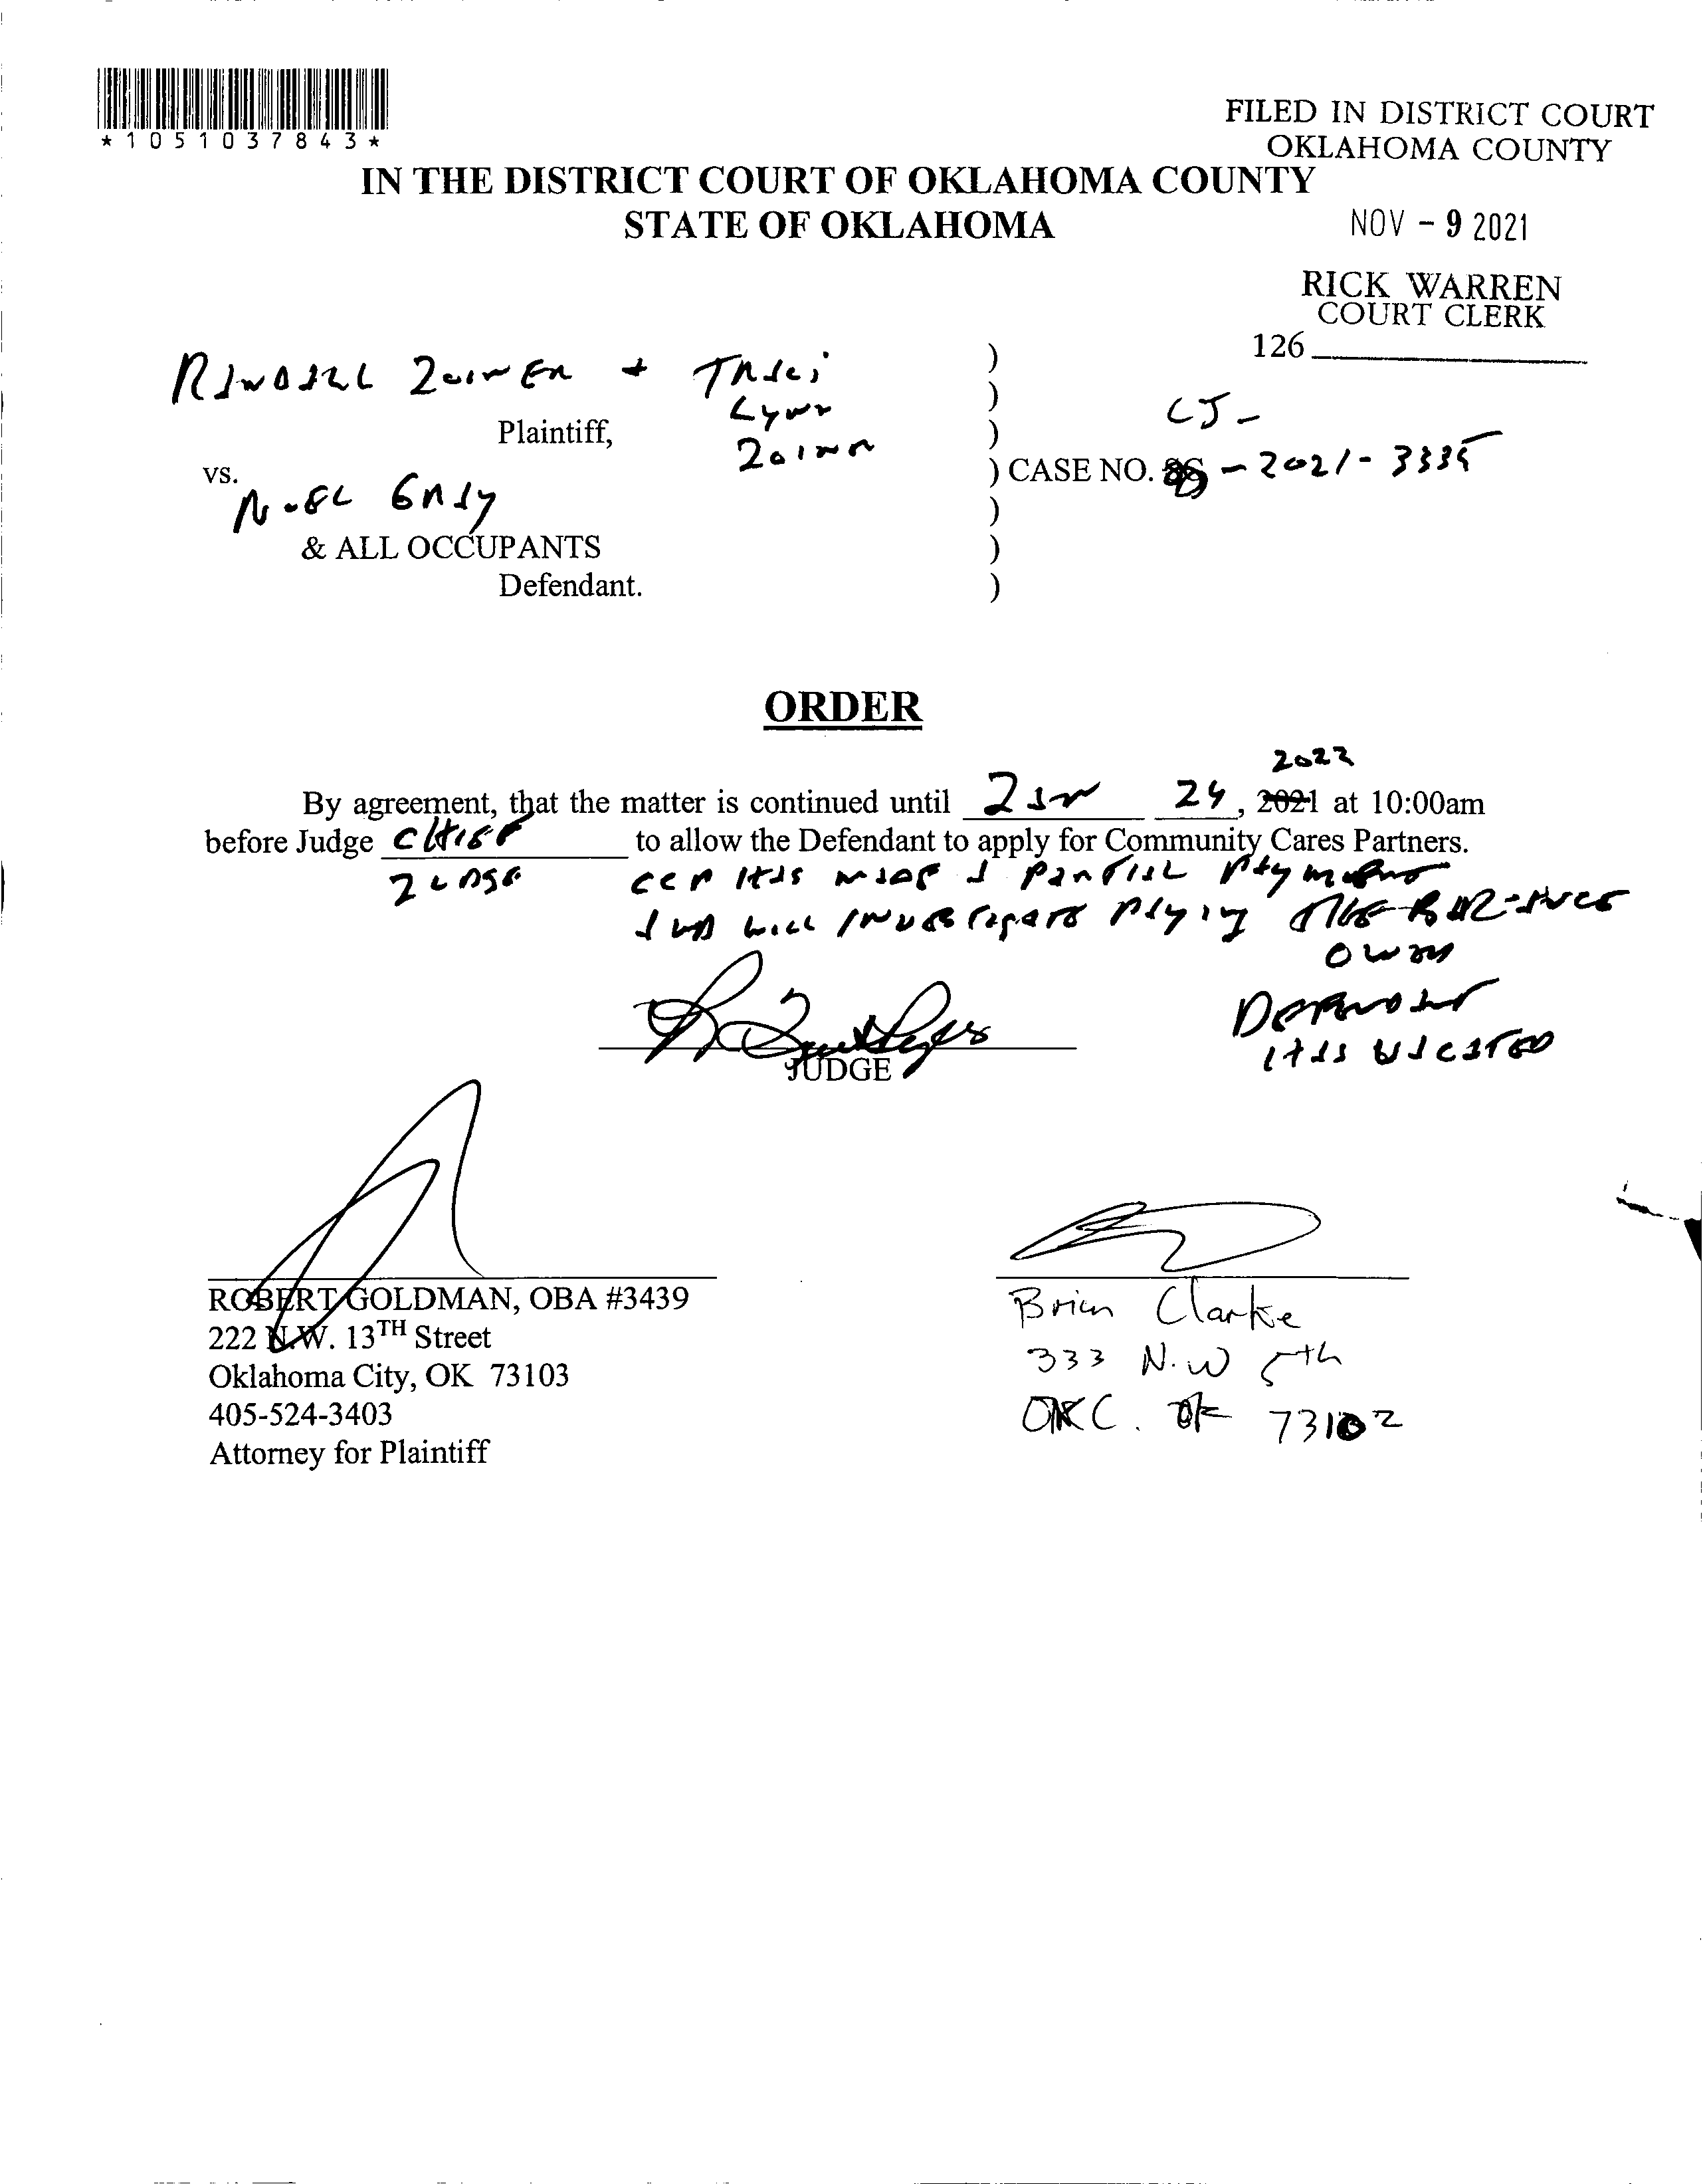 *1051037843*
FILED IN DISTRICT COURT
OKLAHOMA COUNTY
IN THE DISTRICT COURT OF OKLAHOMA COUNTY
STATE OF OKLAHOMA
NOV - 9 2021
RICK WARREN
COURT CLERK
126
RANDALL JOINER + TRACI
LYNN
JOINER
Plaintiff,
vs.
NOEL GRAY
& ALL OCCUPANTS
Defendant.
)
)
)
) CASE NO. CJ-
- 2021-3335
)
)
)
ORDER
By agreement, that the matter is continued until JAN 24, 2021 2022 at 10:00am
before Judge CHIEF to allow the Defendant to apply for Community Cares Partners.
JUDGE CCP HAS MADE A PARTIAL PAYMENT
AND WILL INVESTIGATE PAYING THE BALANCE
DEFENDANT
HAS VACATED
JUDGE
ROBERT GOLDMAN, OBA #3439
222 N.W. 13TH Street
Oklahoma City, OK 73103
405-524-3403
Attorney for Plaintiff
Brian Clarke
333 N.W 5th
OKC. OK 73102